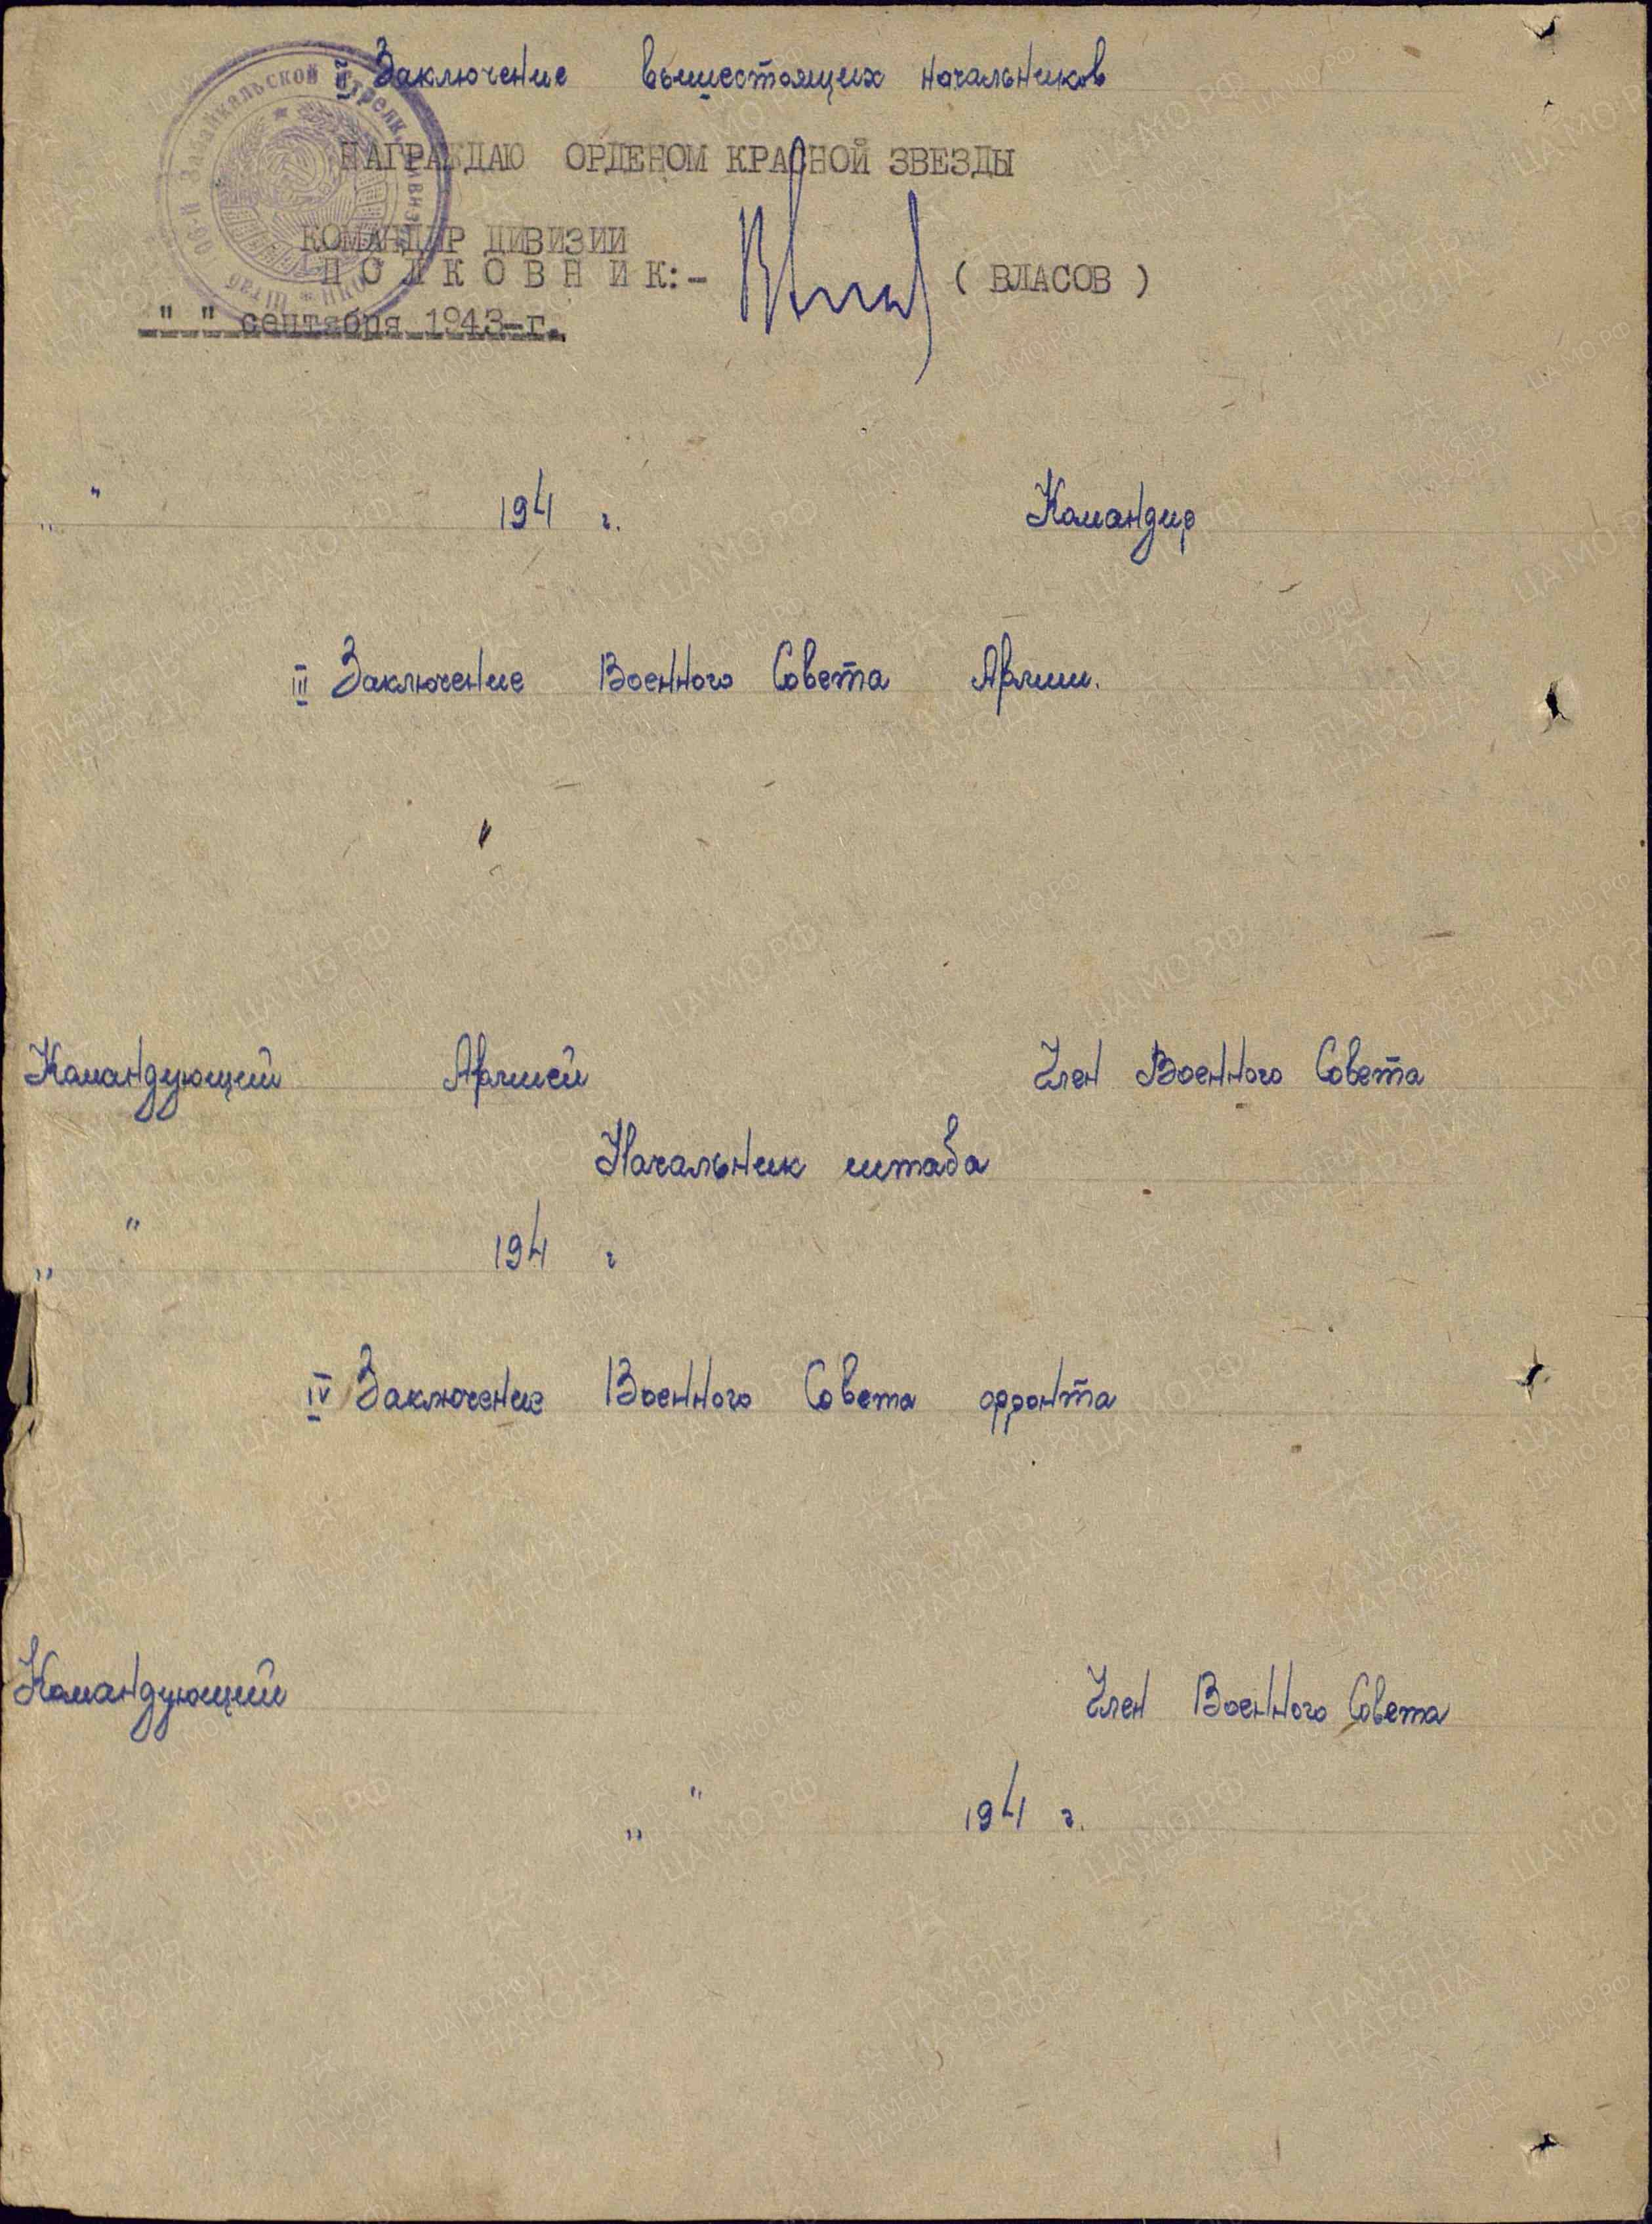 II Заключение вышестоящих начальников
НАГРАЖДАЮ ОРДЕНОМ КРАСНОЙ ЗВЕЗДЫ
КОМАНДИР ДИВИЗИИ
ПОЛКОВНИК:- ( ВЛАСОВ )
" " сентября 1943-г.
„ " 194 г. Командир
III Заключение Военного Совета Армии.
Командующий Армией Член Военного Совета
Начальник штаба
„ " 194 г
IV Заключение Военного Совета фронта
Командующий Член Военного Совета
„ " 194 г.
Забайкальской Стрелк.
Штаб
ЦА МО РФ
ПАМЯТЬ НАРОДА